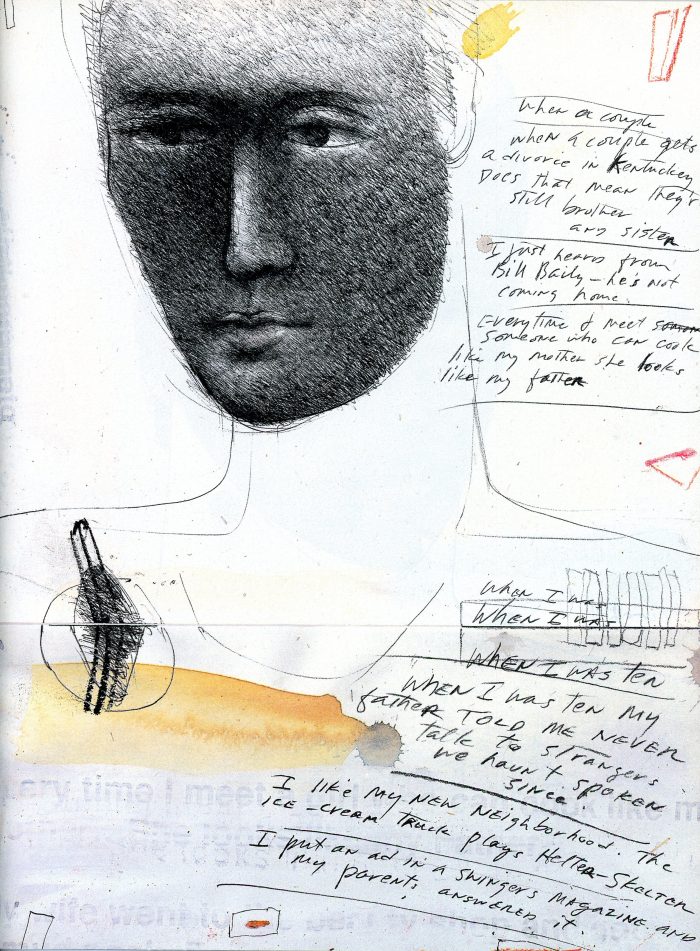 When a couple
when a couple gets
a divorce in Kentuckey
Does that mean they'r
still brother
and sister
I just heard from
Bill Baily – he's not
coming home.
Everytime I meet
Someone who can cook
like my mother she looks
like my father
When I was
When I was
When I was ten
When I was ten my
father told me never
talk to strangers
we havn't spoken
since
I like my new neighborhood. The
ice cream truck plays Helter-Skelter
I put an ad in a swingers magazine and
my parents answered it.
ary time I meet